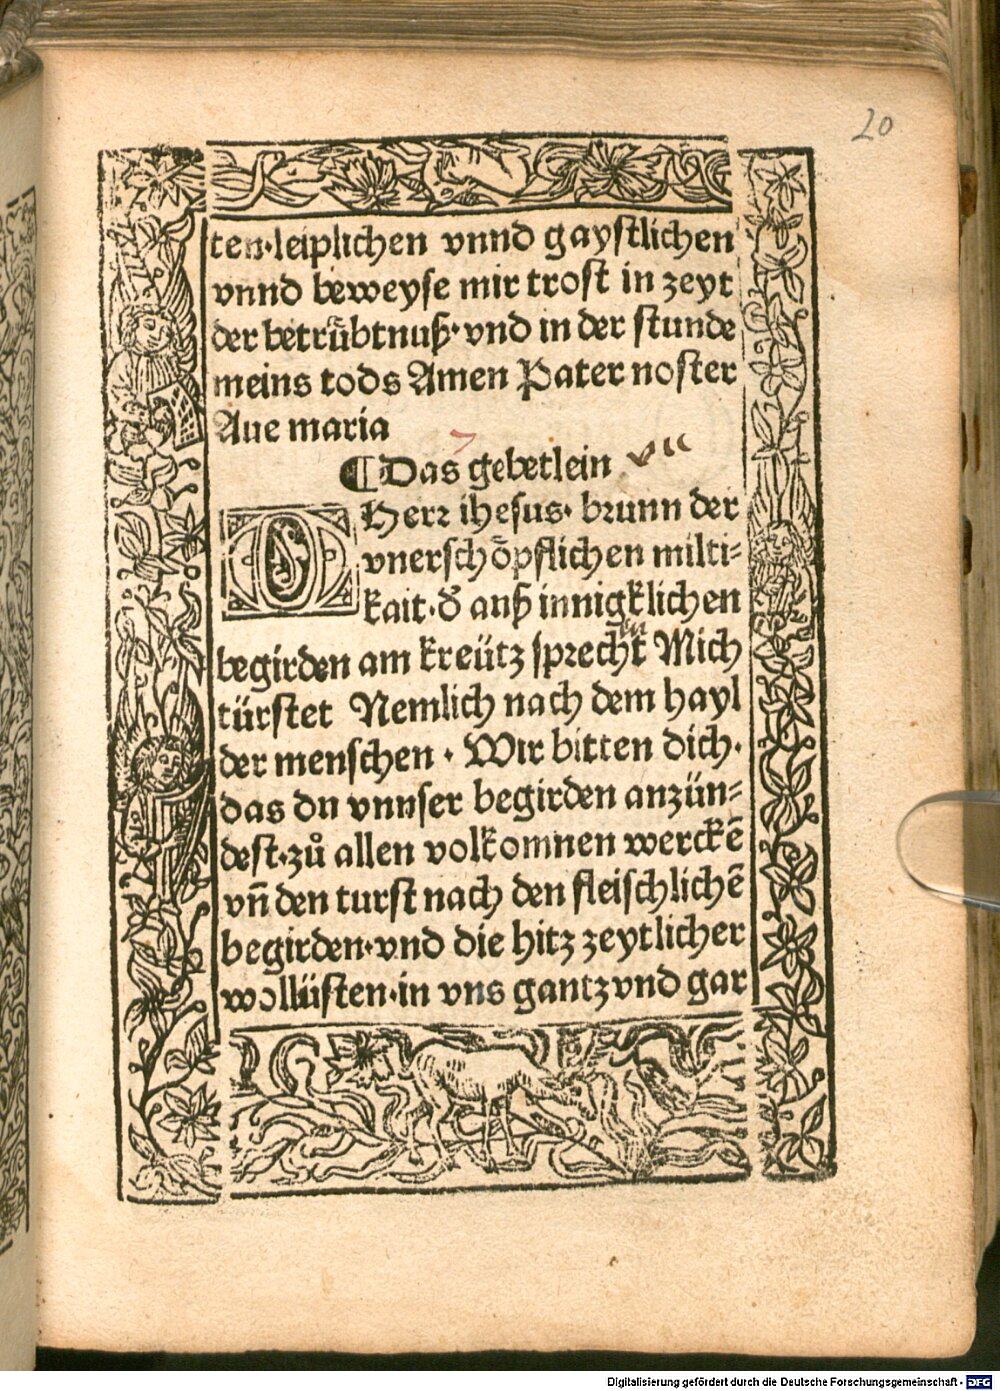 20
ten·leiplichen vnnd gaystlichen
vnnd beweyse mir trost in zeyt
der betrübtnuß·vnd in der stunde
meins tods Amen Pater noster
Aue maria
¶Das gebetlein
O Herr ihesus· brunn der
vnerschöpflichen milti-
kait·ď auß innigklichen
begirden am kreütz sprecht Mich
türstet Nemlich nach dem hayl
der menschen · Wir bitten dich·
das du vnnser begirden anzün-
dest·zů allen volkomnen werckē
vn̄ den turst nach den fleischlichē
begirden·vnd die hitz zeytlicher
wollüsten·in vns gantz vnd gar
Digitalisierung gefördert durch die Deutsche Forschungsgemeinschaft - DFG